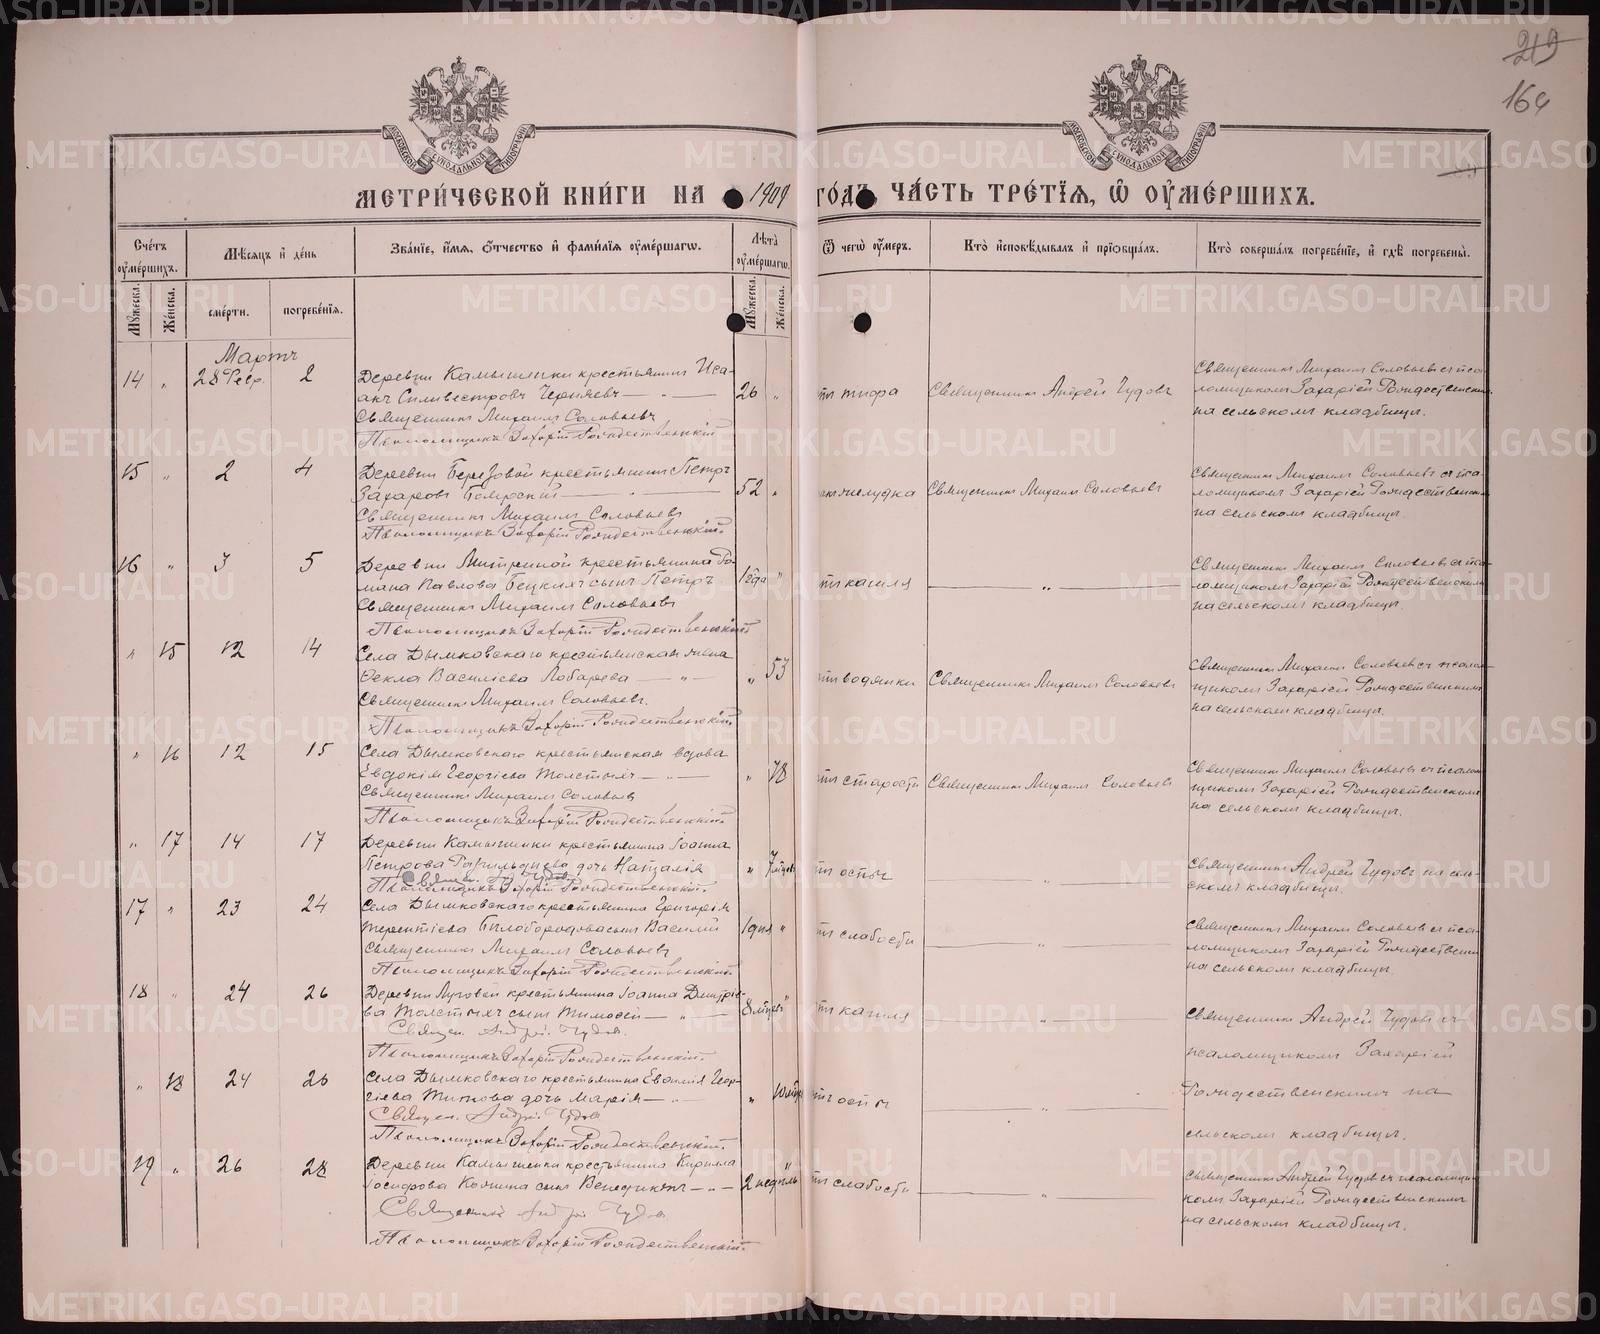 219
164
МЕТРИ́ЧЕСКОЙ КНИ́ГИ НА 1909 ГОДЪ, ЧА́СТЬ ТРЕ́ТІЯ, Ѿ ОУМЕ́РШИХЪ.
Сче́тъ оуме́ршихъ.
Мѣсяцъ и де́нь
Зва́ніе, и́мя, о́тчество и фами́лія оуме́ршагѡ.
Лѣта оуме́ршагѡ.
Ѿ чегѡ̀ оу́меръ.
Кто̀ исповѣ́дывалъ и пріѡбща́лъ.
Кто̀ соверша́лъ погребе́ніе, и гдѣ̀ погребены̀.
Му́жеска.
Же́нска.
сме́рти.
погребе́нія.
Му́жеска.
Же́нска.
Мартъ
14 " 28 Февр. 2
Деревни Камышенки крестьянинъ Иса-
акъ Силивестровъ Черняевъ — " —
Священникъ Михаилъ Соловьевъ
Псаломщикъ Захарій Рождественскій
26 "
тъ тифа
Священникъ Андрей Чудовъ
Священникъ Михаилъ Соловьевъ съ пса-
ломщикомъ Захаріей Рождественскимъ
на сельскомъ кладбищѣ.
15 " 2 4
Деревни Березовой крестьянинъ Петръ
Захаровъ — " —
Священникъ Михаилъ Соловьевъ
Псаломщикъ Захарій Рождественскій
52 "
желудка
Священникъ Михаилъ Соловьевъ
Священникъ Михаилъ Соловьевъ съ пса-
ломщикомъ Захаріей Рождественскимъ
на сельскомъ кладбищѣ.
16 " 3 5
Деревни крестьянина Ро-
мана Павлова сынъ Петръ
Священникъ Михаилъ Соловьевъ
Псаломщикъ Захарій Рождественскій
1 года "
тъ кашля
— " —
Священникъ Михаилъ Соловьевъ съ пса-
ломщикомъ Захаріей Рождественскимъ
на сельскомъ кладбищѣ.
" 15 12 14
Села Дымковскаго крестьянская жена
Фекла Василіева Лобарева — " —
Священникъ Михаилъ Соловьевъ.
Псаломщикъ Захарій Рождественскій
" 53
тъ водянки
Священникъ Михаилъ Соловьевъ
Священникъ Михаилъ Соловьевъ съ псалом-
щикомъ Захаріей Рождественскимъ
на сельскомъ кладбищѣ.
" 16 12 15
Села Дымковскаго крестьянская вдова
Евдокія Георгіева Толстыхъ — " —
Священникъ Михаилъ Соловьевъ
Псаломщикъ Захарій Рождественскій
" 78
тъ старости
Священникъ Михаилъ Соловьевъ
Священникъ Михаилъ Соловьевъ съ псалом-
щикомъ Захаріей Рождественскимъ
на сельскомъ кладбищѣ.
" 17 14 17
Деревни Камышенки крестьянина Іоанна
Петрова дочь Наталія
Священ. Чудовъ
Псаломщикъ Захарій Рождественскій.
" 7 мѣсяц
тъ оспы
— " —
Священникъ Андрей Чудовъ на сель-
скомъ кладбищѣ.
17 " 23 24
Села Дымковскаго крестьянина Григорія
Терентіева Бѣлобородова сынъ Василій
Священникъ Михаилъ Соловьевъ
Псаломщикъ Захарій Рождественскій
1 дня "
тъ слабости
— " —
Священникъ Михаилъ Соловьевъ съ пса-
ломщикомъ Захаріей Рождественскимъ
на сельскомъ кладбищѣ.
18 " 24 26
Деревни Луговой крестьянина Іоанна Димитріе-
ва Толстыхъ сынъ Тимофей — " —
Священ. Андрей Чудовъ.
Псаломщикъ Захарій Рождественскій.
8 мѣсяц "
тъ кашля
— " —
Священникъ Андрей Чудовъ съ
псаломщикомъ Захаріей
" 18 24 26
Села Дымковскаго крестьянина Евфимія Геор-
гіева Титова дочь Марія — " —
Священ. Андрей Чудовъ
Псаломщикъ Захарій Рождественскій.
" 10 мѣсяц
тъ оспы
"
Рождественскимъ на
сельскомъ кладбищѣ.
19 " 26 28
Деревни Камышенки крестьянина Кирилла
Іосифова Конина сынъ Венедиктъ — " —
Священникъ Андрей Чудовъ
Псаломщикъ Захарій Рождественскій
2 недѣль "
тъ слабости
— " —
Священникъ Андрей Чудовъ съ псаломщи-
комъ Захаріей Рождественскимъ
на сельскомъ кладбищѣ.
METRIKI.GASO-URAL.RU